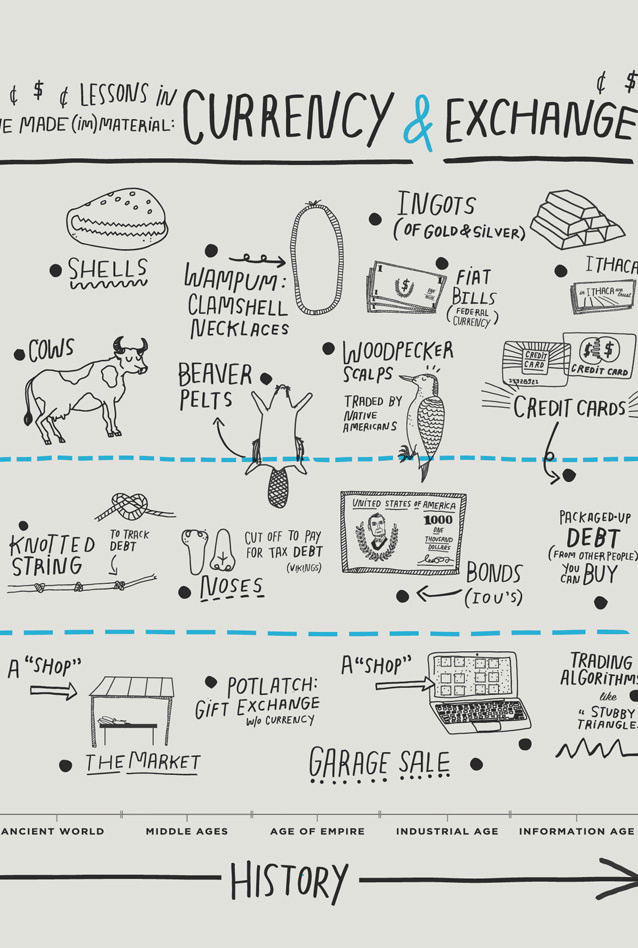 ¢ $ ¢ LESSONS in
CURRENCY & EXCHANGE
¢ $
VE MADE (im)MATERIAL:
SHELLS
WAMPUM:
CLAMSHELL
NECKLACES
INGOTS
(OF GOLD & SILVER)
1
$
FIAT
BILLS
(FEDERAL
CURRENCY)
ITHACA
COWS
BEAVER
PELTS
WOODPECKER
SCALPS
TRADED BY
NATIVE
AMERICANS
CREDIT
CARD
$ $
CREDIT CARD
CREDIT CARDS
KNOTTED
STRING
TO TRACK
DEBT
NOSES
CUT OFF TO PAY
FOR TAX DEBT
(VIKINGS)
UNITED STATES OF AMERICA
1000
ONE
THOUSAND
DOLLARS
BONDS
(IOU'S)
PACKAGED-UP
DEBT
(FROM OTHER PEOPLE)
YOU
CAN BUY
A "SHOP"
THE MARKET
POTLATCH:
GIFT EXCHANGE
W/O CURRENCY
A "SHOP"
GARAGE SALE
TRADING
ALGORITHMS
like
"STUBBY
TRIANGLES
ANCIENT WORLD
MIDDLE AGES
AGE OF EMPIRE
INDUSTRIAL AGE
INFORMATION AGE
HISTORY